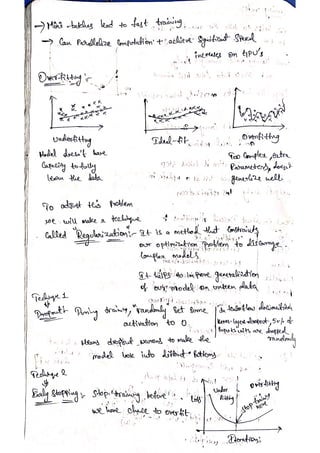 → Mini-batches lead to fast training
→ Can Parallelize Computation + achieve Significant Speed
increases on GPU's
Overfitting:-
Underfitting
Ideal-fit
Overfitting
Model doesn't have
Capacity to fully
learn the data
Too Complex, extra
Parameters, doesn't
generalize well
To adjust this Problem
we will make a technique
Called "Regularization":- It is a method that Constraints
our optimization problem to discourage
Complex models
It helps to improve generalization
of our model on unseen data
Technique 1
Dropout:- During training, randomly set some
activation to 0
Means dropout neurons to make the
model look into different Patterns
In tensorflow
keras.layer.dropout, 50% of
inputs with are dropped
randomly
Technique 2
Early Stopping:- Stop training before
we have chance to overfit
Loss
Under
fitting
Overfitting
stop training
here
Iterations